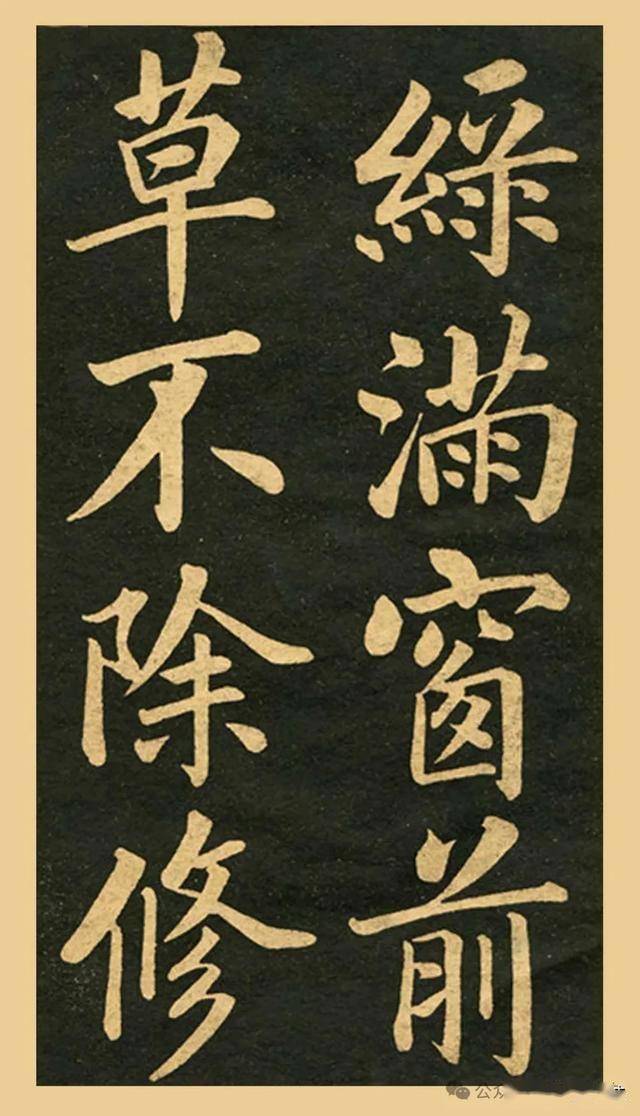 綠滿窗前
草不除修
公众